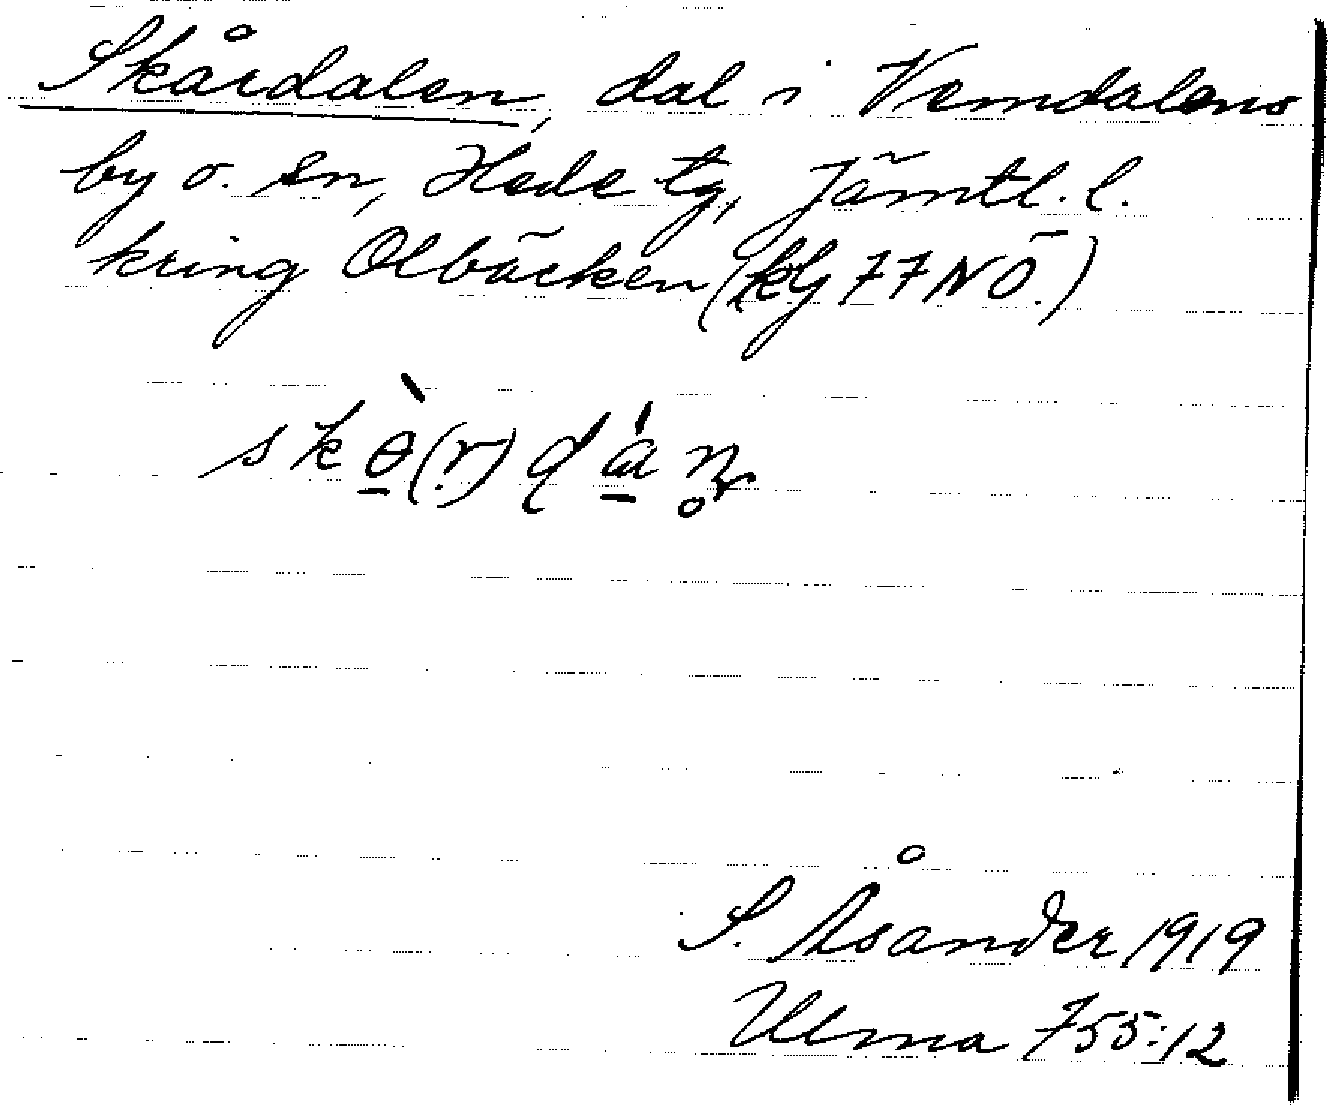 Skårdalen, dal i Vemdalens
by o. sn, Hede tg, Jämtl. l.
kring Olbäcken (kbl 77 NÖ.)
skɵ̱̀(r)dá̱n̥
S. Åsander 1919
Ulma 755:12